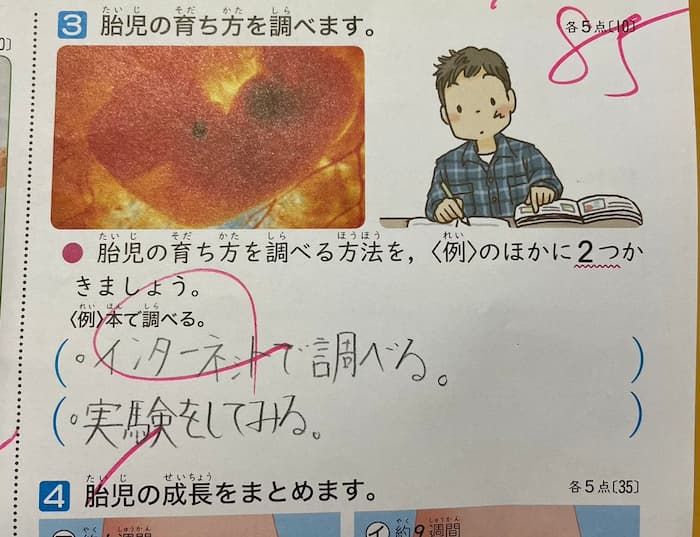 3 胎児の育ち方を調べます。 各5点〔10〕
85
● 胎児の育ち方を調べる方法を,〈例〉のほかに2つか
きましょう。
〈例〉本で調べる。
(。インターネットで調べる。)
(。実験をしてみる。)
4 胎児の成長をまとめます。 各5点〔35〕
ア 約4週間 イ 約9週間